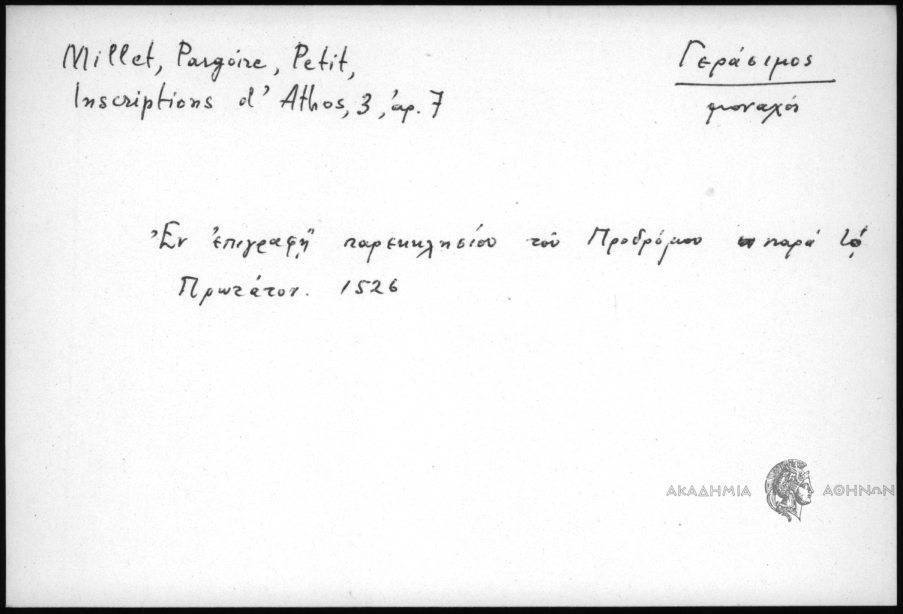 Millet, Pargoire, Petit,
Inscriptions d' Athos, 3, ἀρ. 7
Γεράσιμος
μοναχός
Ἐν ἐπιγραφῇ παρεκκλησίου τοῦ Προδρόμου παρά τῷ
Πρωτάτον. 1526
ΑΚΑΔΗΜΙΑ ΑΘΗΝΩΝ